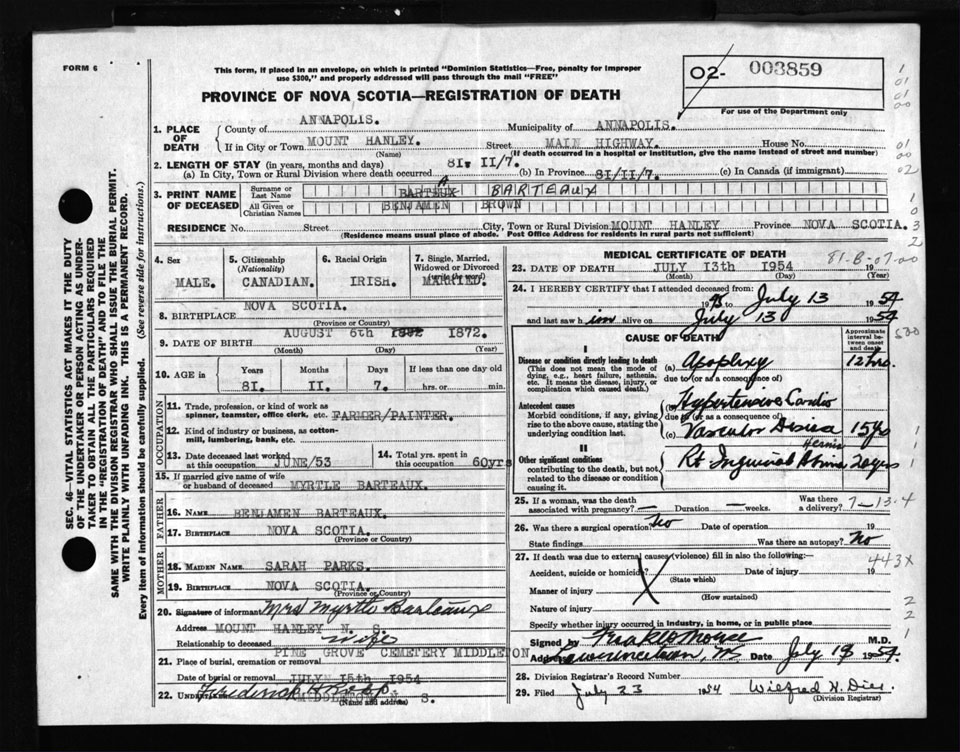 FORM 6
This form, if placed in an envelope, on which is printed "Dominion Statistics—Free, penalty for improper
use $300," and properly addressed will pass through the mail "FREE"
O2- 003859
For use of the Department only
PROVINCE OF NOVA SCOTIA—REGISTRATION OF DEATH
1. PLACE OF DEATH
County of ANNAPOLIS. Municipality of ANNAPOLIS.
If in City or Town MOUNT HANLEY. Street MAIN HIGHWAY. House No.
(Name) (If death occurred in a hospital or institution, give the name instead of street and number)
2. LENGTH OF STAY (in years, months and days) 81. 11/7.
(a) In City, Town or Rural Division where death occurred (b) In Province 81/11/7. (c) In Canada (if immigrant)
3. PRINT NAME OF DECEASED
Surname or Last Name BARTEAUX BARTEAUX
All Given or Christian Names BENJAMEN BROWN
RESIDENCE No. Street City, Town or Rural Division MOUNT HANLEY Province NOVA SCOTIA.
(Residence means usual place of abode. Post Office Address for residents in rural parts not sufficient)
SEC. 46—VITAL STATISTICS ACT MAKES IT THE DUTY
OF THE UNDERTAKER OR PERSON ACTING AS UNDER-
TAKER TO OBTAIN ALL THE PARTICULARS REQUIRED
IN THE "REGISTRATION OF DEATH" AND TO FILE THE
SAME WITH THE DIVISION REGISTRAR WHO SHALL ISSUE THE BURIAL PERMIT.
WRITE PLAINLY WITH UNFADING INK. THIS IS A PERMANENT RECORD.
Every item of information should be carefully supplied. (See reverse side for instructions.)
4. Sex MALE.
5. Citizenship (Nationality) CANADIAN.
6. Racial Origin IRISH.
7. Single, Married, Widowed or Divorced (write the word) MARRIED.
8. BIRTHPLACE NOVA SCOTIA.
(Province or Country)
9. DATE OF BIRTH AUGUST 6th 1872.
(Month) (Day) (Year)
10. AGE in Years 81. Months 11. Days 7. If less than one day old hrs. or min.
OCCUPATION
11. Trade, profession, or kind of work as
spinner, teamster, office clerk, etc. FARMER/PAINTER.
12. Kind of industry or business, as cotton-
mill, lumbering, bank, etc.
13. Date deceased last worked at this occupation JUNE/53
14. Total yrs. spent in this occupation 60yrs
15. If married give name of wife
or husband of deceased MYRTLE BARTEAUX.
FATHER
16. NAME BENJAMEN BARTEAUX.
17. BIRTHPLACE NOVA SCOTIA.
(Province or Country)
MOTHER
18. MAIDEN NAME SARAH PARKS.
19. BIRTHPLACE NOVA SCOTIA.
(Province or Country)
20. Signature of informant Mrs Myrtle Barteaux
Address MOUNT HANLEY N. S.
Relationship to deceased wife
PINE GROVE CEMETERY MIDDLETON
21. Place of burial, cremation or removal
JULY 15th 1954
22. UNDERTAKER
MIDDLETON N. S.
(Name and address)
MEDICAL CERTIFICATE OF DEATH
81-B-07-00
23. DATE OF DEATH JULY 13th 1954 19
(Month) (Day) (Year)
24. I HEREBY CERTIFY that I attended deceased from
19 to July 13 1954
and last saw him alive on July 13 1954
CAUSE OF DEATH
Approximate interval between onset and death
I
Disease or condition directly leading to death
(This does not mean the mode of dying, e.g., heart failure, asthenia, etc. It means the disease, injury, or complication which caused death.)
(a) Apoplexy 12 hrs.
due to (or as a consequence of)
Antecedent causes
Morbid conditions, if any, giving rise to the above cause, stating the underlying condition last.
(b) Hypertensive Cardio
due to (or as a consequence of)
(c) Vascular Disease 15 yrs
II
Other significant conditions
contributing to the death, but not related to the disease or condition causing it.
Rt Inguinal Hernia 20 yrs
25. If a woman, was the death
associated with pregnancy? — Duration — weeks. Was there a delivery?
7-13-4
26. Was there a surgical operation? No Date of operation 19
State findings Was there an autopsy? No
27. If death was due to external causes (violence) fill in also the following:—
443X
Accident, suicide or homicide? Date of injury 19
(State which)
Manner of injury
(How sustained)
Nature of injury
Specify whether injury occurred in industry, in home, or in public place
Signed by M.D.
Address Lawrencetown, NS Date July 1954.
28. Division Registrar's Record Number
29. Filed July 23 1954
(Division Registrar)